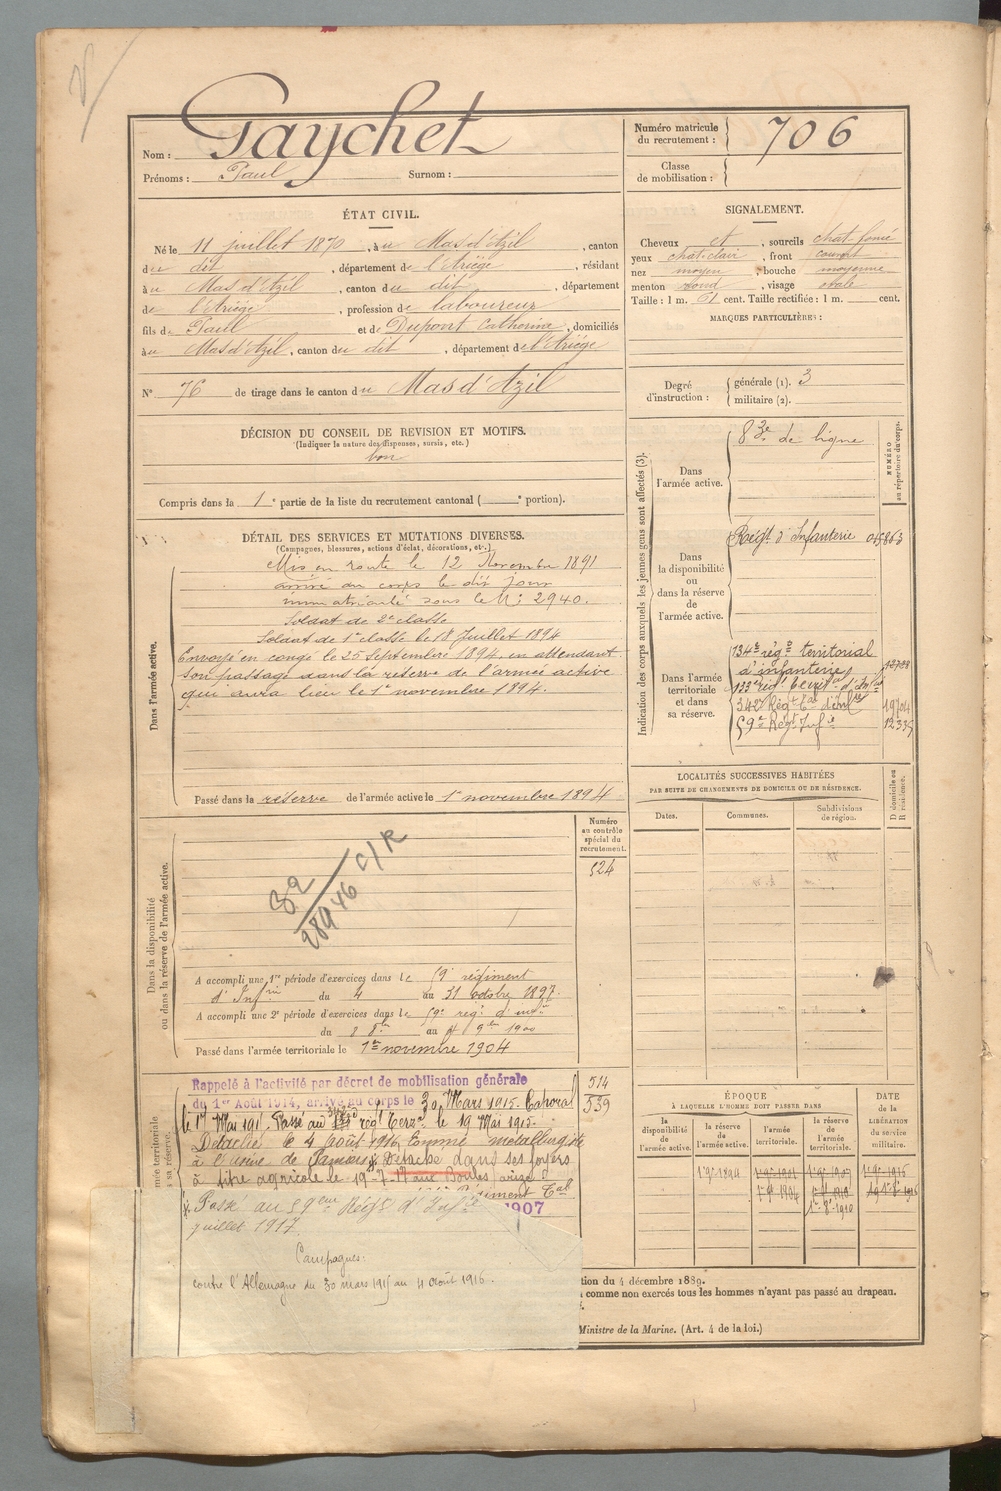 Nom : Gaychet
Prénoms : Paul Surnom :
Numéro matricule
du recrutement : 706
Classe
de mobilisation :
ÉTAT CIVIL.
Né le 11 juillet 1870, à u Mas d'Azil, canton
du dit, département de l'Ariège, résidant
à u Mas d'Azil, canton du dit, département
de l'Ariège, profession de laboureur
fils de Paul et de Dupont Catherine, domiciliés
à u Mas d'Azil, canton du dit, département de l'Ariège
N° 76 de tirage dans le canton du Mas d'Azil
SIGNALEMENT.
Cheveux et, sourcils chat-foncé
yeux chat-clair, front couvert
nez moyen, bouche moyenne
menton rond, visage ovale
Taille : 1 m. 61 cent. Taille rectifiée : 1 m. cent.
MARQUES PARTICULIÈRES :
Degré
d'instruction :
générale (1). 3
militaire (2).
DÉCISION DU CONSEIL DE REVISION ET MOTIFS.
(Indiquer la nature des dispenses, sursis, etc.)
bon
Compris dans la 1e partie de la liste du recrutement cantonal ( e portion).
DÉTAIL DES SERVICES ET MUTATIONS DIVERSES.
(Campagnes, blessures, actions d'éclat, décorations, etc.)
Dans l'armée active.
Mis en route le 12 Novembre 1891
arrivé au corps le dit jour
immatriculé sous le N° 2940.
Soldat de 2e classe
Soldat de 1e classe le 18 Juillet 1894
Envoyé en congé le 25 Septembre 1894 en attendant
son passage dans la réserve de l'armée active
qui aura lieu le 1er novembre 1894.
Passé dans la réserve de l'armée active le 1er novembre 1894
Indication des corps auxquels les jeunes gens sont affectés (3).
NUMÉRO
au répertoire du corps.
Dans
l'armée active.
83e de ligne
Dans
la disponibilité
ou
dans la réserve
de
l'armée active.
Régt d'Infanterie
Dans l'armée
territoriale
et dans
sa réserve.
134e régt territorial
d'infanterie
133e régt territ al d'Inf ie
342e Régt Tal d'Inf ie
59e Régt Inf ie
19704
12335
LOCALITÉS SUCCESSIVES HABITÉES
PAR SUITE DE CHANGEMENTS DE DOMICILE OU DE RÉSIDENCE.
D domicile ou
R résidence.
Dates.
Communes.
Subdivisions
de région.
Numéro
au contrôle
spécial du
recrutement.
524
Dans la disponibilité
ou dans la réserve de l'armée active.
A accompli une 1re période d'exercices dans le 59e régiment
d'Inf rie du 4 au 31 octobre 1897.
A accompli une 2e période d'exercices dans le 59e régt d'inf ie
du 8 8bre au 4 9bre 1900
Passé dans l'armée territoriale le 1er novembre 1904
514
539
Rappelé à l'activité par décret de mobilisation générale
du 1er Août 1914, arrivé au corps le 30 Mars 1915. Caporal
le 1er Mai 191. Passé au 342e régt Terr al le 19 Mai 1915-
Détaché le 4 août 1916, Comme métallurgiste
à l'usine de Pamiers. Détaché dans ses foyers
à titre agricole le 19-7-17 aux Bordes
1907
Passé au 59eme Régt d'Inf ie
juillet 1917
Campagnes:
contre l'Allemagne du 30 mars 1915 au 4 août 1916.
ÉPOQUE
À LAQUELLE L'HOMME DOIT PASSER DANS
DATE
de la
LIBÉRATION
du service
militaire.
la
disponibilité
de
l'armée active.
la réserve
de
l'armée active.
l'armée
territoriale.
la réserve
de
l'armée
territoriale.
1er 9bre 1894
1er 9bre 1904
tion du 4 décembre 1889.
comme non exercés tous les hommes n'ayant pas passé au drapeau.
Ministre de la Marine. (Art. 4 de la loi.)